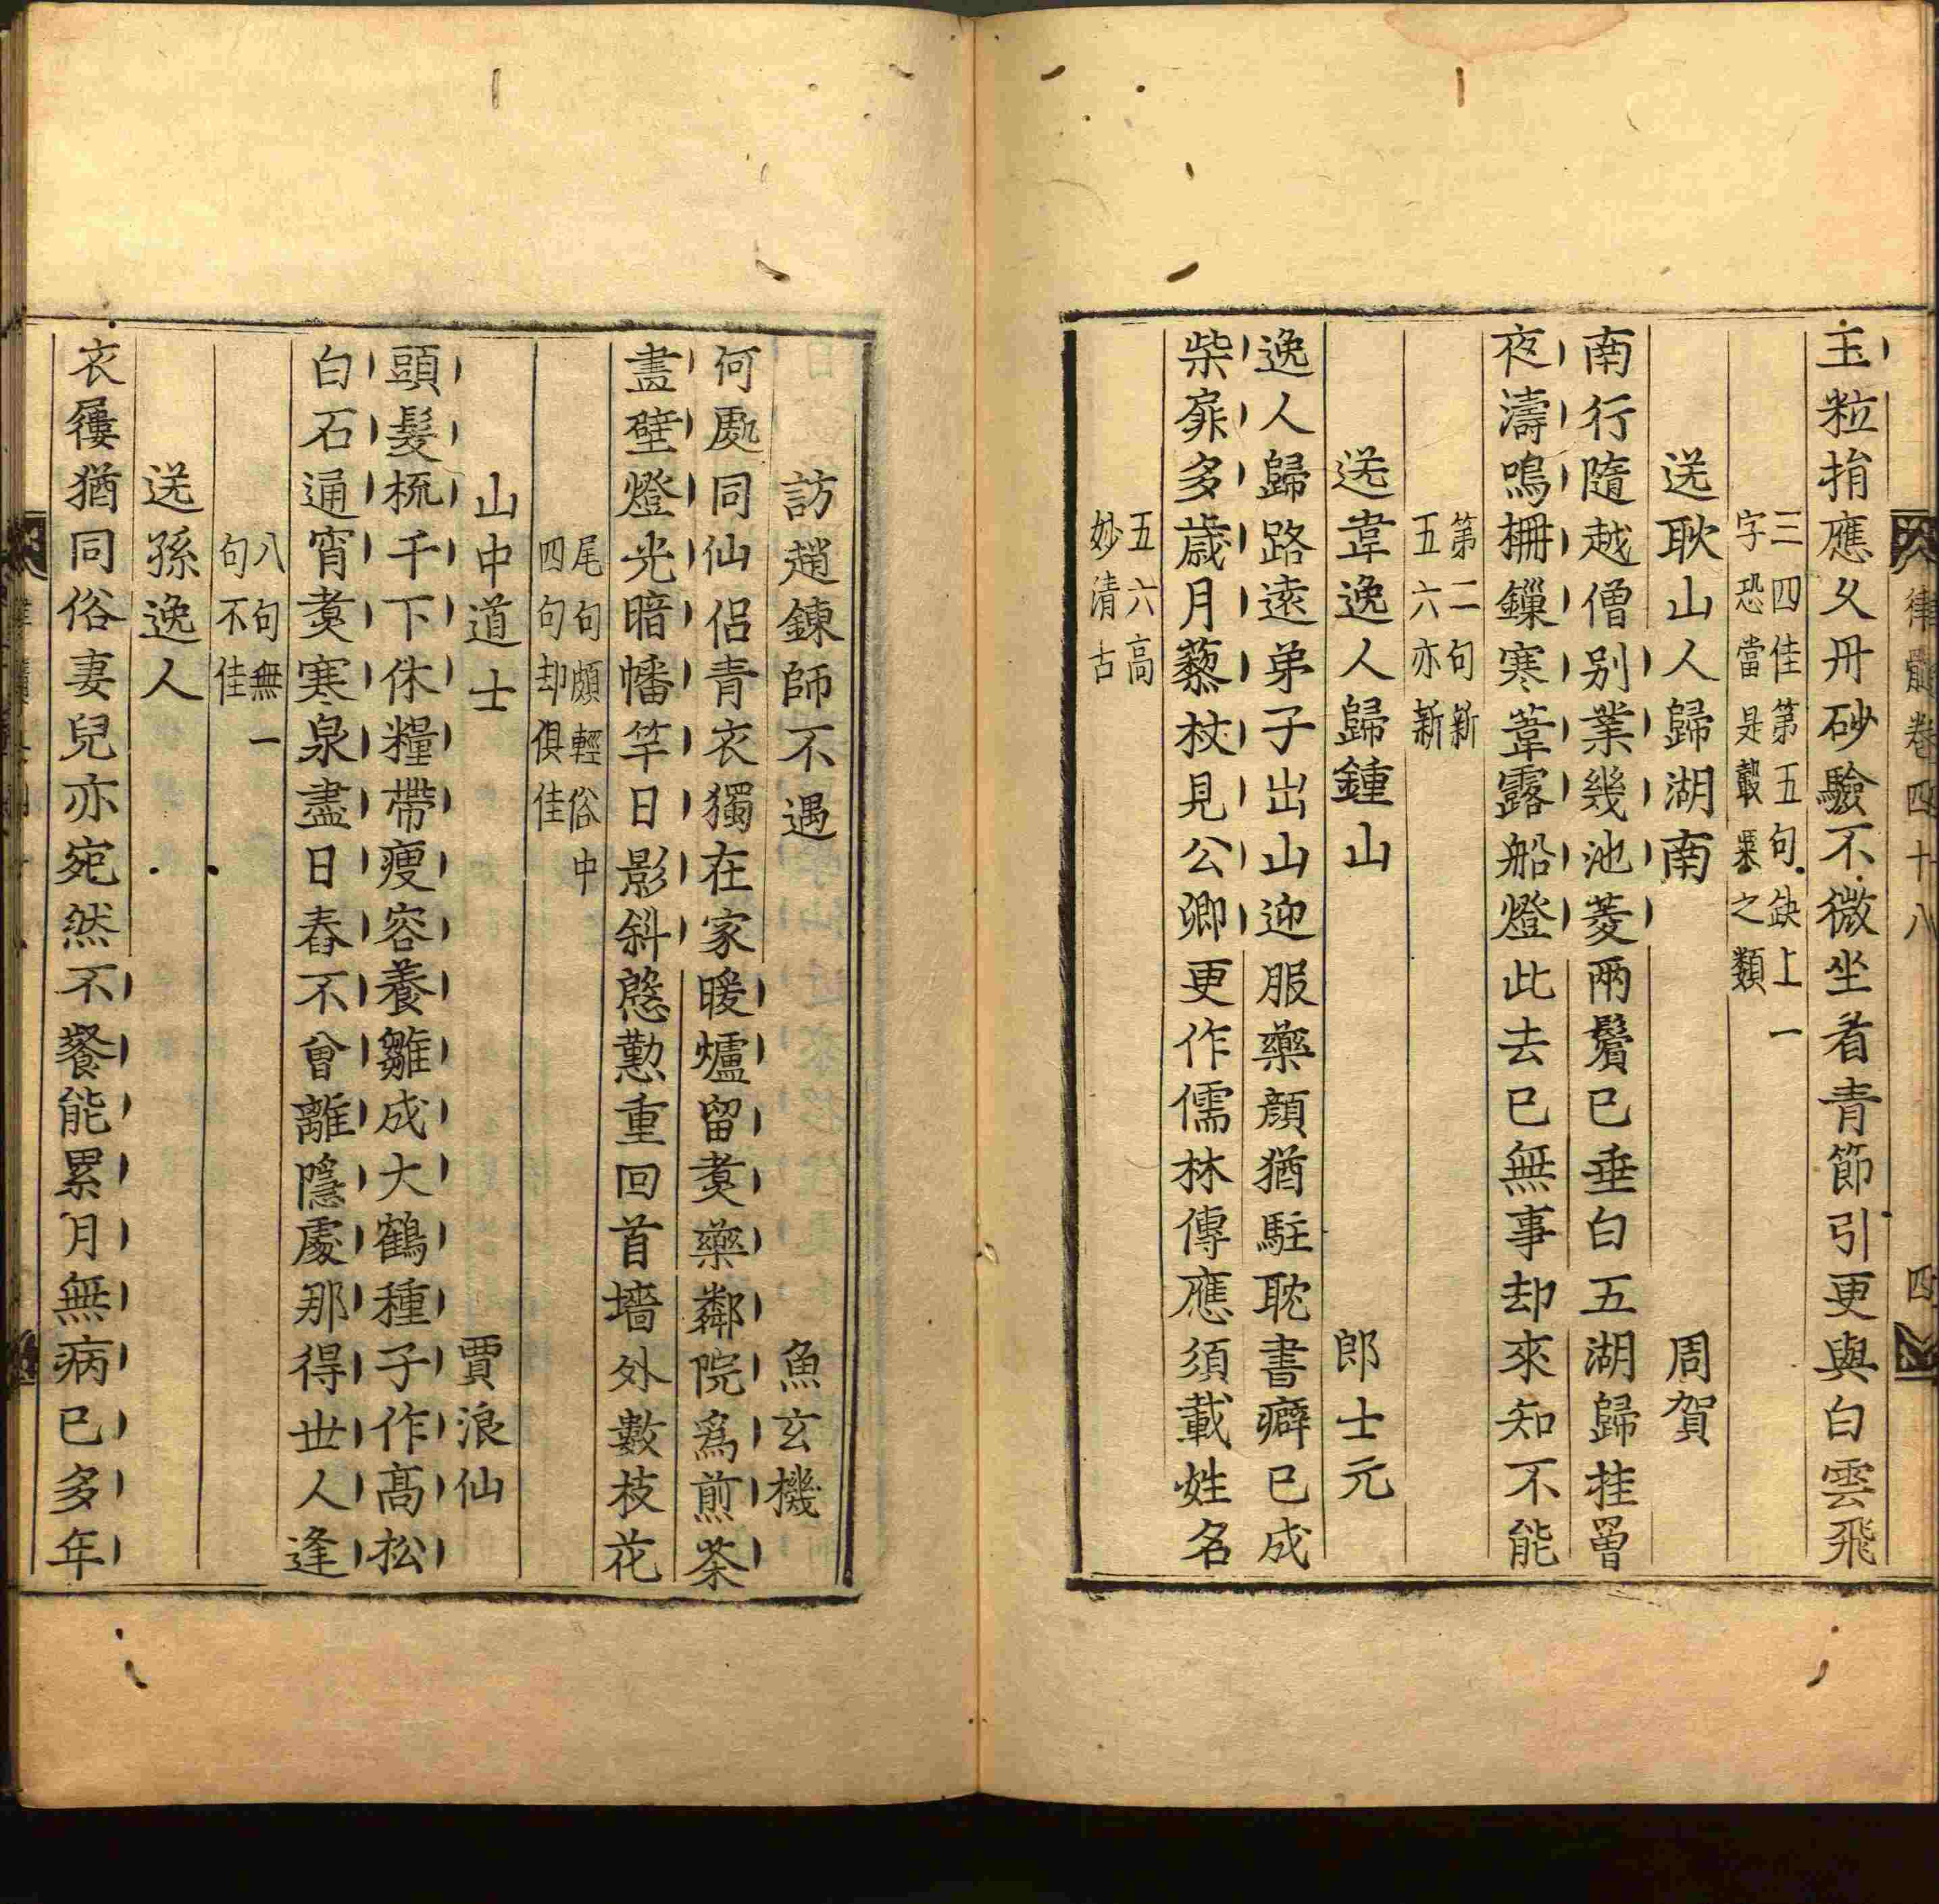 律髓卷四十八
四
玉粒捎應久丹砂驗不微坐看青節引更與白雲飛
三四佳第五句缺上一
字恐當是穀米之類
送耿山人歸湖南
周賀
南行隨越僧别業幾池菱兩鬢已垂白五湖歸挂罾
夜濤鳴柵鏁寒葦露船燈此去已無事却來知不能
第二句新
五六亦新
送韋逸人歸鍾山
郎士元
逸人歸路遠弟子出山迎服藥顔猶駐耽書癖已成
柴扉多歲月藜杖見公卿更作儒林傳應須載姓名
五六高
妙清古
訪趙鍊師不遇
魚玄機
何處同仙侣青衣獨在家暖爐留煑藥鄰院爲煎茶
畫壁燈光暗幡竿日影斜慇懃重回首墻外數枝花
尾句頗輕俗中
四句却俱佳
山中道士
賈浪仙
頭髮梳千下休糧帶瘦容養雛成大鶴種子作髙松
白石通宵煑寒泉盡日舂不曾離隱處那得世人逢
八句無一
句不佳
送孫逸人
衣屨猶同俗妻兒亦宛然不餐能累月無病已多年